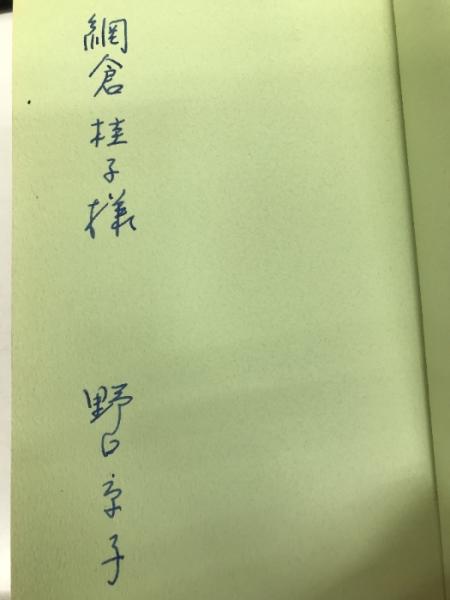 網倉桂子様
野口京子